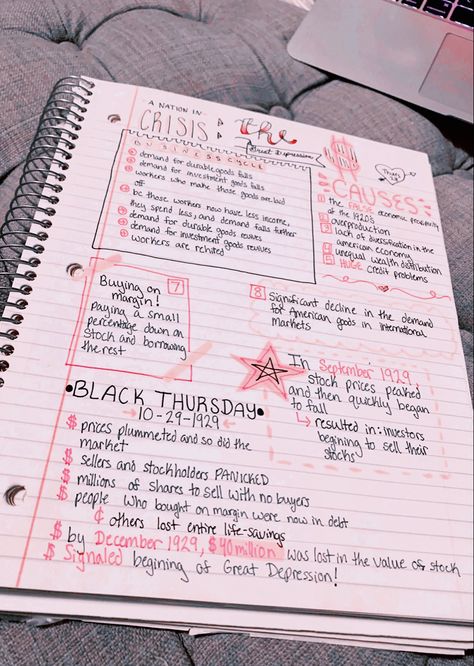 A NATION IN
CRISIS: The
Great Depression
BUSINESS CYCLE
① demand for durable goods falls
② demand for investment goods falls
③ workers who make those goods are laid
off
④ bc those workers now have less income,
they spend less, and demand falls further
⑤ demand for durable goods revives
⑥ demand for investment goods revives
⑦ workers are rehired
CAUSES
1 the FALSE economic prosperity
of the 1920's
2 overproduction
3 lack of diversification in the
american economy
4 unequal wealth distribution
5 HUGE credit problems
7
Buying on
margin!
paying a small
percentage down on
stock and borrowing
the rest
8 Significant decline in the demand
for American goods in international
markets
In September, 1929,
stock prices peaked
and then quickly began
to fall
↳ resulted in: investors
begining to sell their
stocks
•BLACK THURSDAY•
→10-29-1929←
$ prices plummeted and so did the
market
$ sellers and stockholders PANICKED
$ millions of shares to sell with no buyers
$ people who bought on margin were now in debt
¢ others lost entire life-savings
$ by December 1929, $40 million was lost in the value of stock
$ Signaled begining of Great Depression!